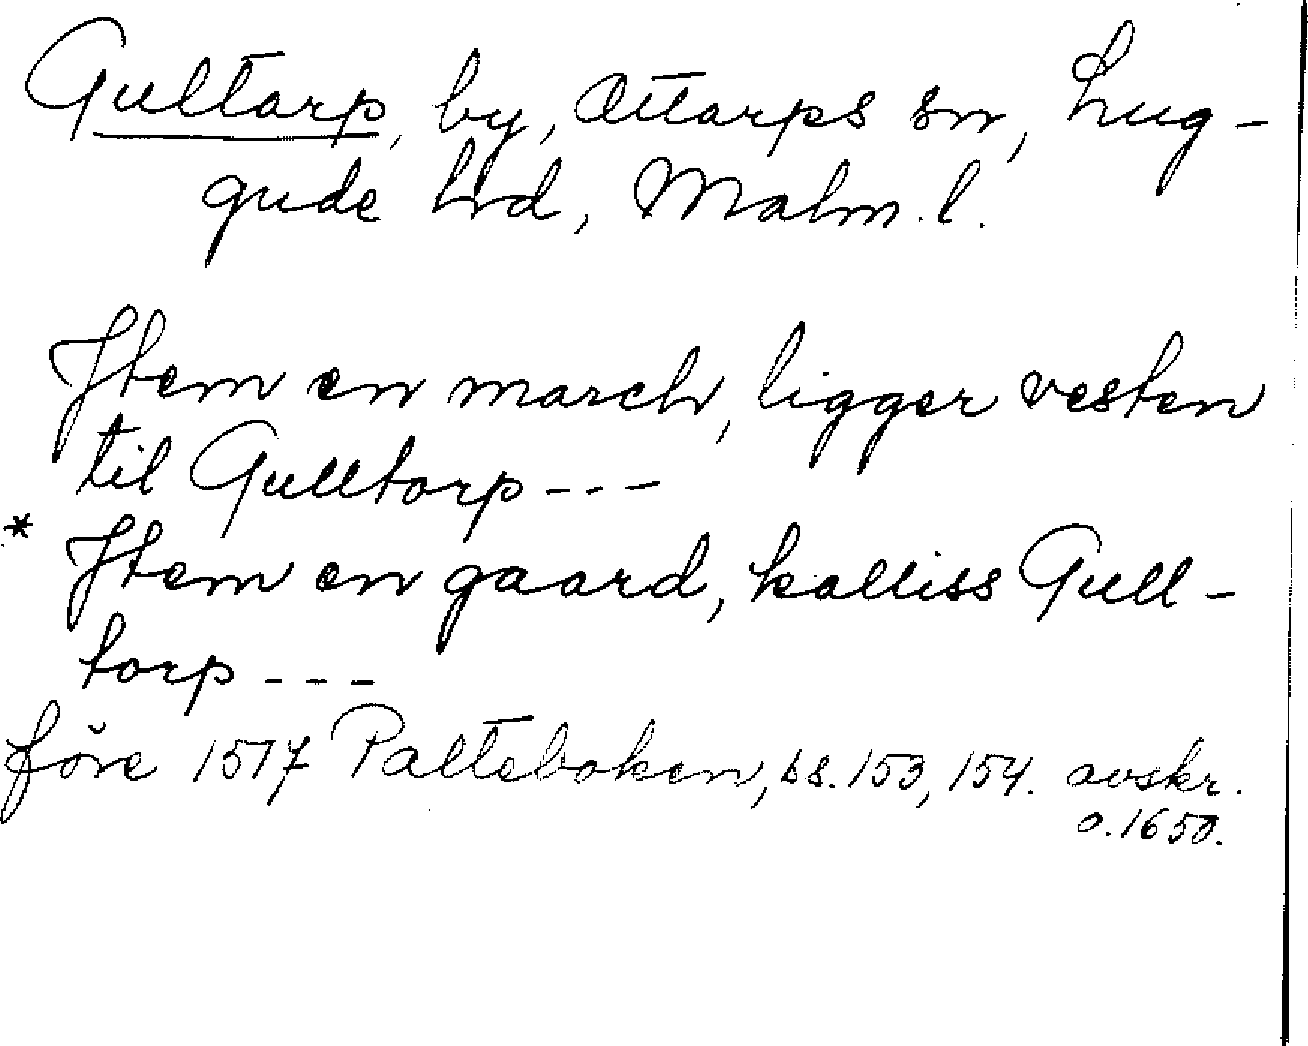 Gultarp, by, Ottarps sn, Lug-
gude hrd, Malm. l.
Jtem en march, ligger vesten
til Gulltorp - - -
* Jtem en gaard, kalliss Gull-
torp - - -
före 1517 Palteboken, ss. 153, 154. avskr.
o. 1650.